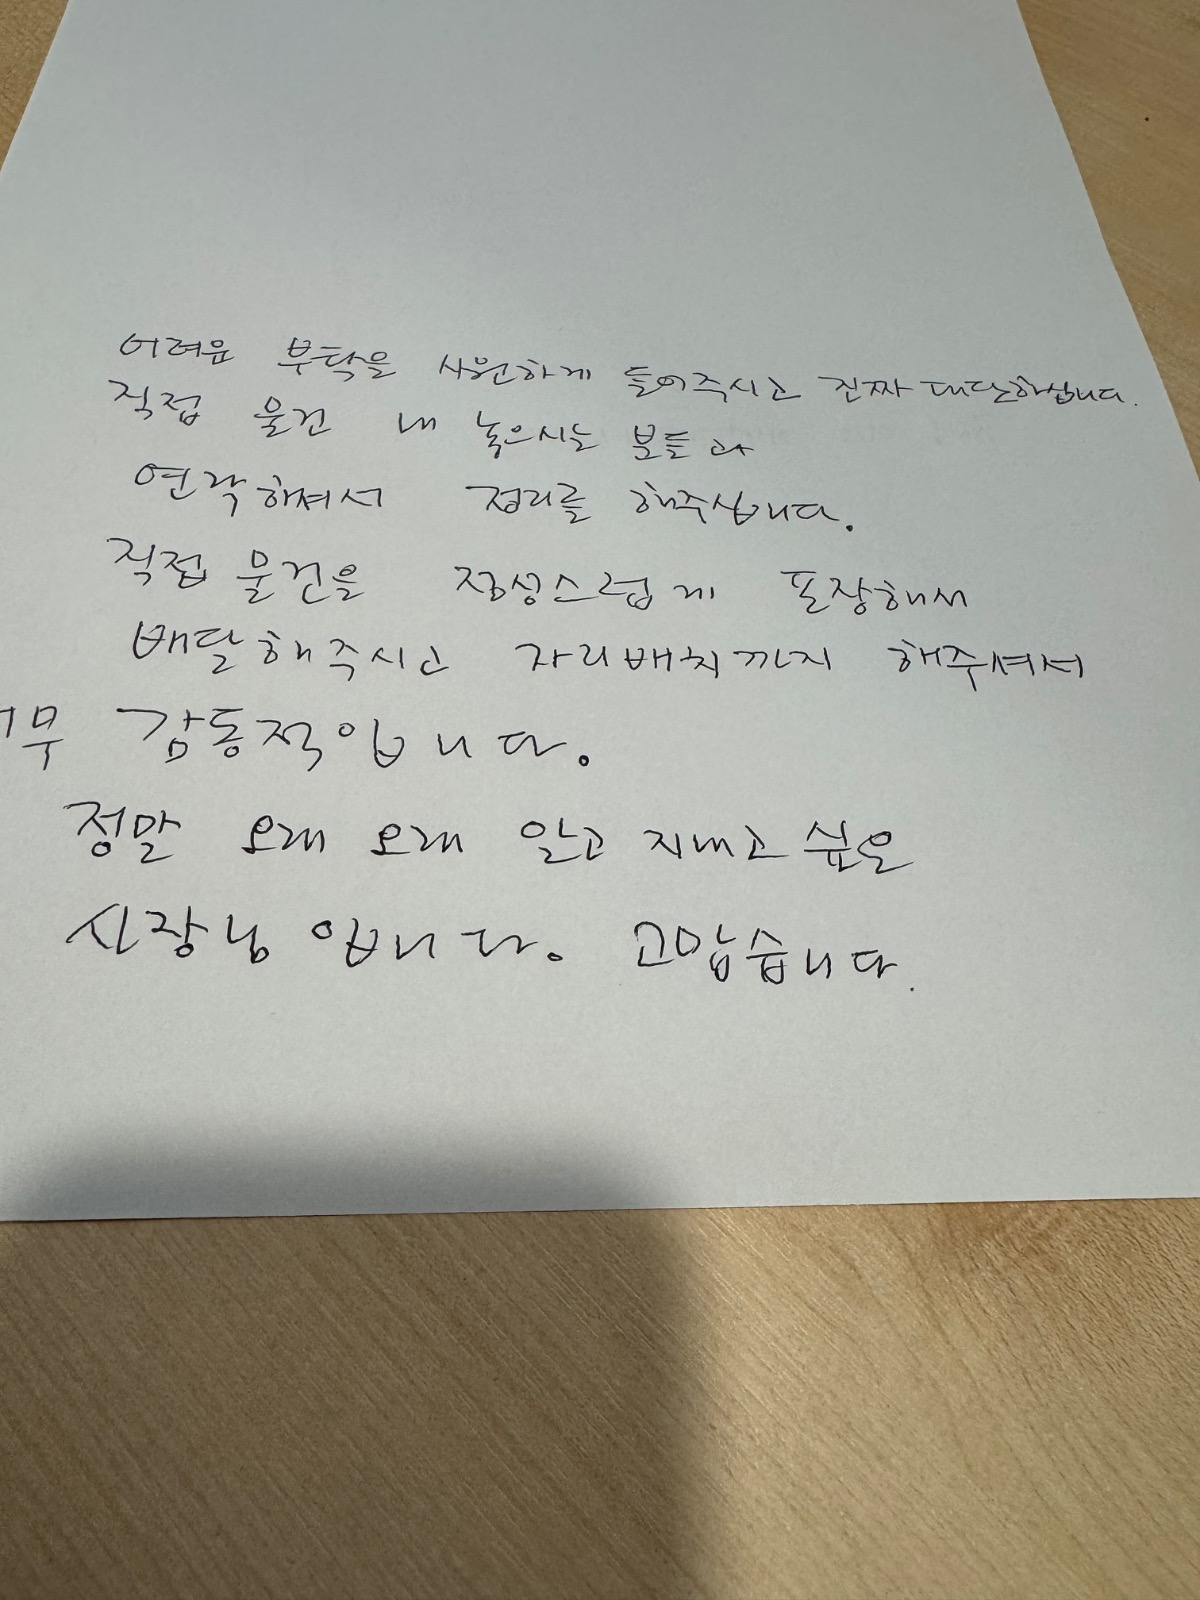 어려운 부탁을 시원하게 들어주시고 진짜 대단하십니다.
직접 물건 내 놓으시는 분들과
연락하셔서 정리를 해주십니다.
직접 물건을 정성스럽게 포장해서
배달해주시고 자리배치까지 해주셔서
너무 감동적입니다.
정말 오래 오래 알고 지내고 싶은
사장님 입니다. 고맙습니다.